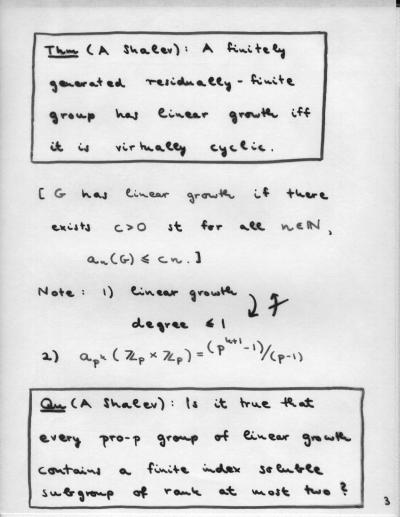 Thm (A Shalev): A finitely
generated residually-finite
group has linear growth iff
it is virtually cyclic.
[ G has linear growth if there
exists c>0 st for all n∈ℕ,
aₙ(G) ≤ cn. ]
Note: 1) linear growth
degree ≤ 1
2) a_{p^k} (ℤ_p × ℤ_p) = (p^{k+1} -1)/(p-1)
Qu (A Shalev): Is it true that
every pro-p group of linear growth
contains a finite index soluble
subgroup of rank at most two?
3